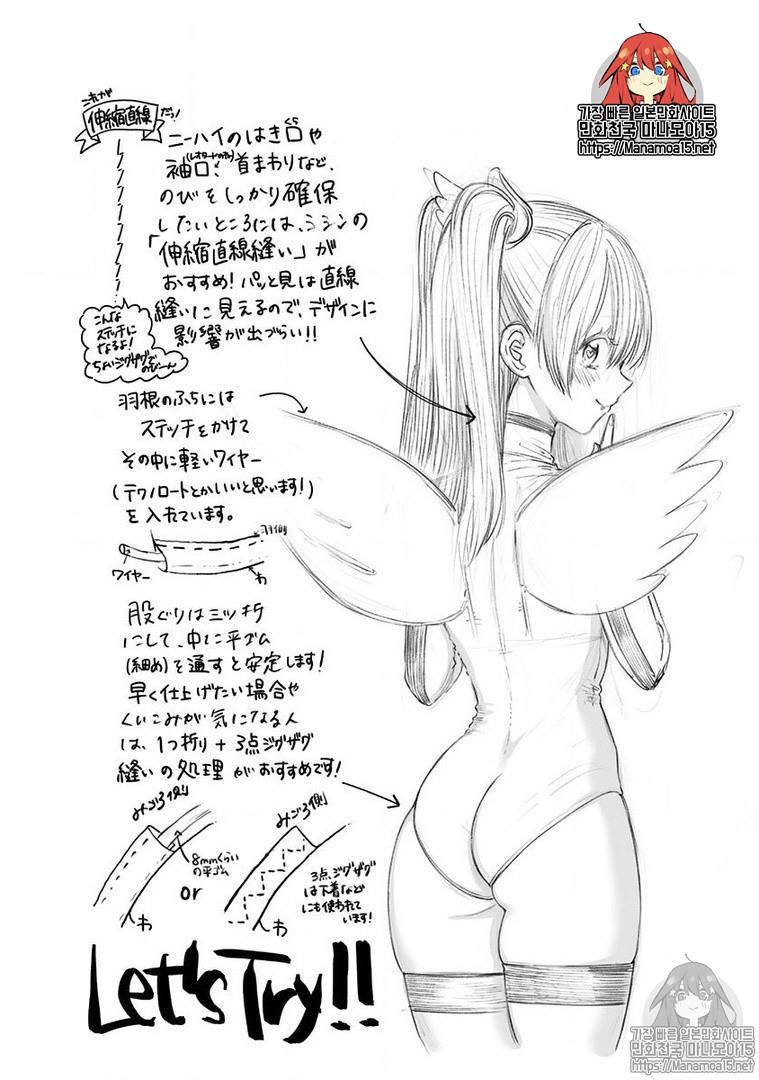 가장 빠른 일본만화사이트
만화천국 마나모아15
https://Manamoa15.net
これが
伸縮直線
だっ!
ニーハイのはき口や
袖口、首まわりなど、
のびをしっかり確保
したいところには、ミシンの
「伸縮直線縫い」が
おすすめ!パッと見は直線
縫いに見えるので、デザインに
影響が出づらい!!
こんな
ステッチに
なるよ!
ちょいジグザグで
のびーん
羽根のふちには
ステッチをかけて
その中に軽いワイヤー
(テクノロートとかいいと思います!)
を入れています。
羽側
ワイヤー
わ
股ぐりは三ツ折
にして、中に平ゴム
(細め)を通すと安定します!
早く仕上げたい場合や
くいこみが気になる人
は、1つ折り+3点ジグザグ
縫いの処理がおすすめです!
みごろ側
8mmくらい
の平ゴム
わ
or
みごろ側
3点ジグザグ
は下着など
にも使われて
います!
わ
Let's Try!!
가장 빠른 일본만화사이트
만화천국 마나모아15
https://Manamoa15.net